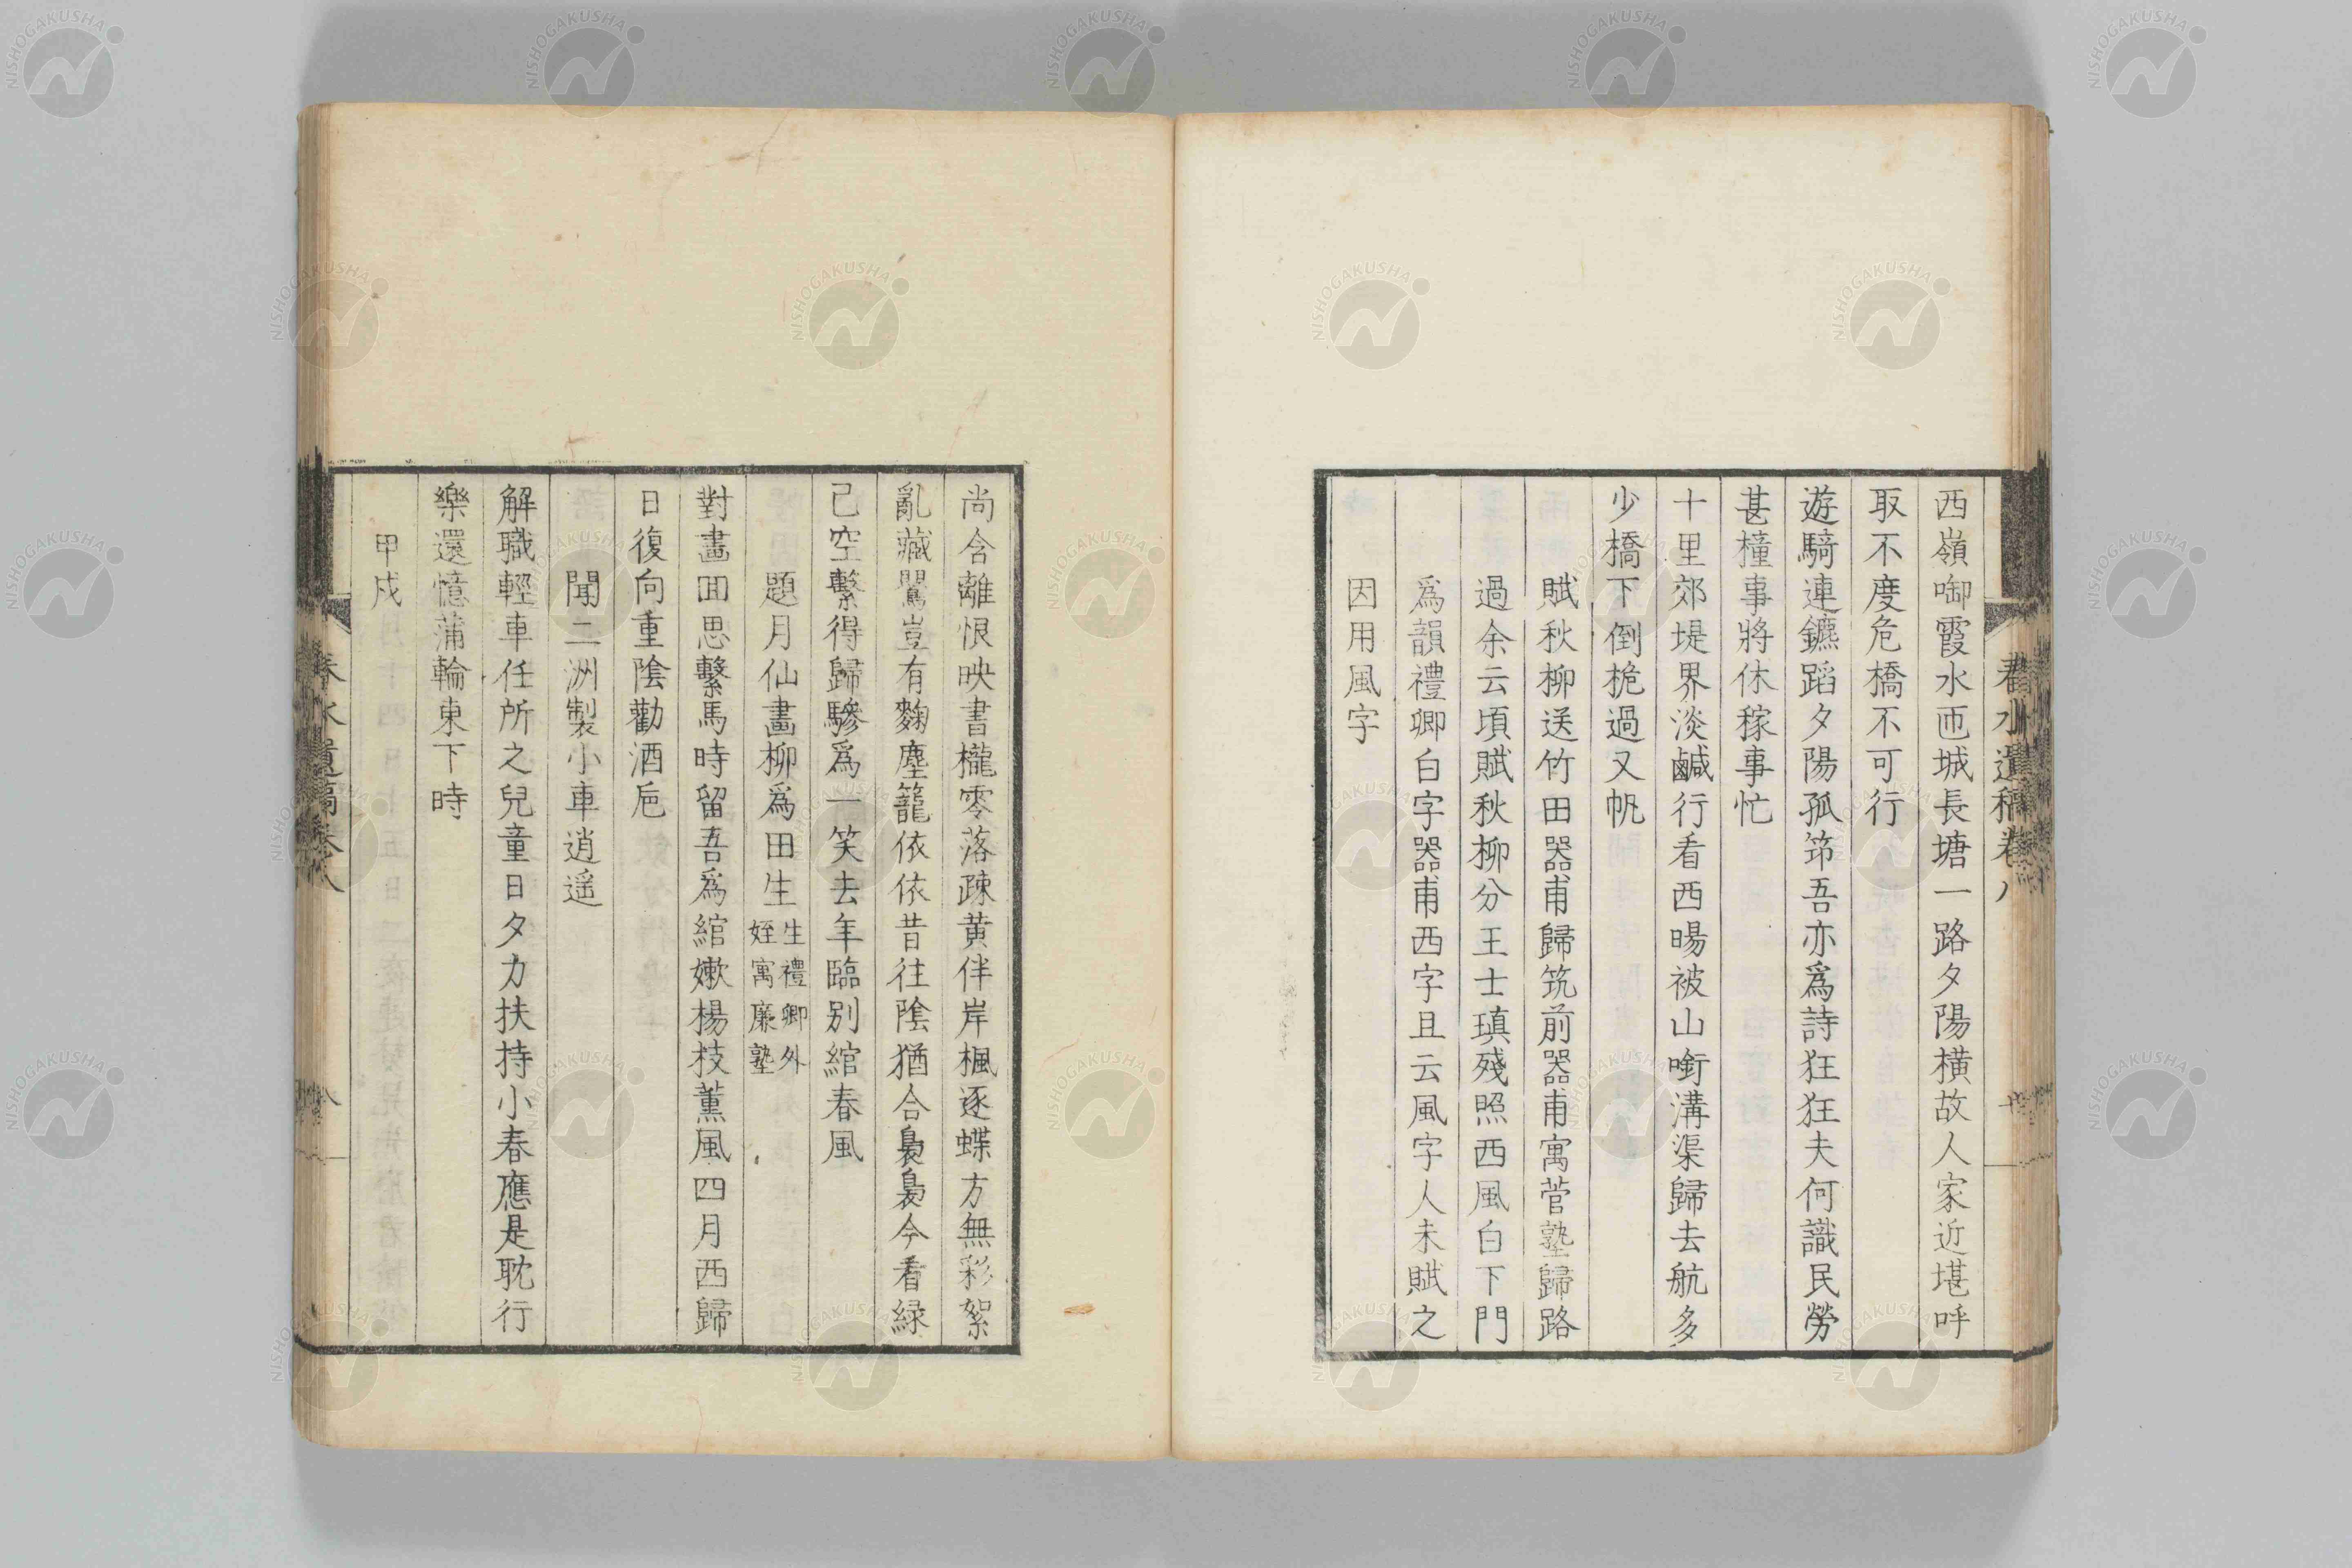 西嶺啣霞水匝城長塘一路夕陽橫故人家近堪呼
取不度危橋不可行
遊騎連鑣蹈夕陽孤筇吾亦爲詩狂狂夫何識民勞
甚橦事將休稼事忙
十里郊堤界淡鹹行看西暘被山銜溝渠歸去航多
少橋下倒桅過又帆
賦秋柳送竹田器甫歸筑前器甫寓菅塾歸路
過余云頃賦秋柳分王士瑱殘照西風白下門
爲韻禮卿白字器甫西字且云風字人未賦之
因用風字
春水遺稿卷八
尚含離恨映書櫳零落疎黄伴岸楓逐蝶方無彩絮
亂藏鸎豈有麴塵籠依依昔往陰猶合裊裊今看緑
已空繫得歸驂爲一笑去年臨別綰春風
題月仙畫柳爲田生生禮卿外姪寓廉塾
對畫囬思繫馬時留吾爲綰嫰楊枝薰風四月西歸
日復向重陰勸酒巵
聞二洲製小車逍遥
解職輕車任所之兒童日夕力扶持小春應是耽行
樂還憶蒲輪東下時
甲戌
春水遺稿卷八
八
NISHOGAKUSHA